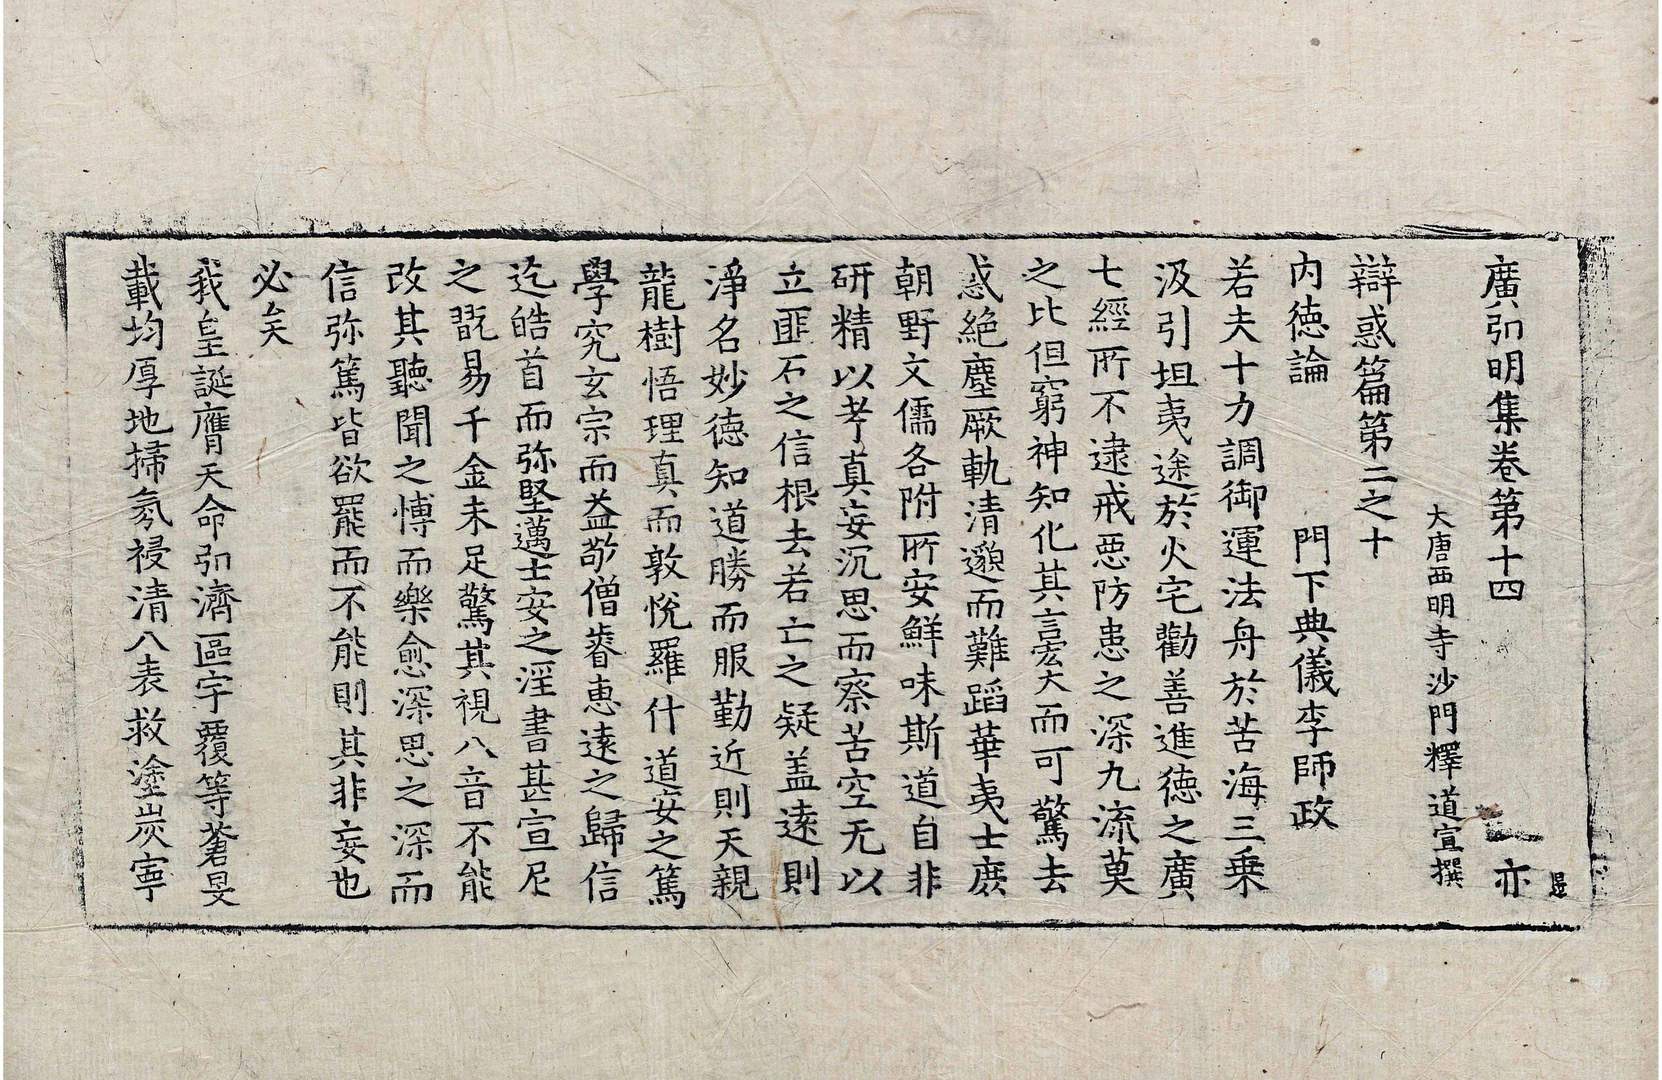 廣弘明集卷第十四 亦
大唐西明寺沙門釋道宣撰
辯惑篇第二之十
内德論 門下典儀李師政
若夫十力調御運法舟於苦海三乗
汲引坦夷途於火宅勸善進德之廣
七經所不逮戒惡防患之深九流莫
之比但窮神知化其言宏大而可驚去
惑絶塵厥軌清邈而難蹈華夷士庶
朝野文儒各附所安鮮味斯道自非
研精以考真妄沉思而察苦空无以
立匪石之信根去若亡之疑盖遠則
淨名妙德知道勝而服勤近則天親
龍樹悟理真而敦悅羅什道安之篤
學究玄宗而益敬僧䂊惠遠之歸信
迄皓首而弥堅邁士安之淫書甚宣尼
之翫易千金未足驚其視八音不能
改其聽聞之博而樂愈深思之深而
信弥篤皆欲罷而不能則其非妄也
必矣
我皇誕膺天命弘濟區宇覆等蒼旻
載均厚地掃氛祲清八表救塗炭寧